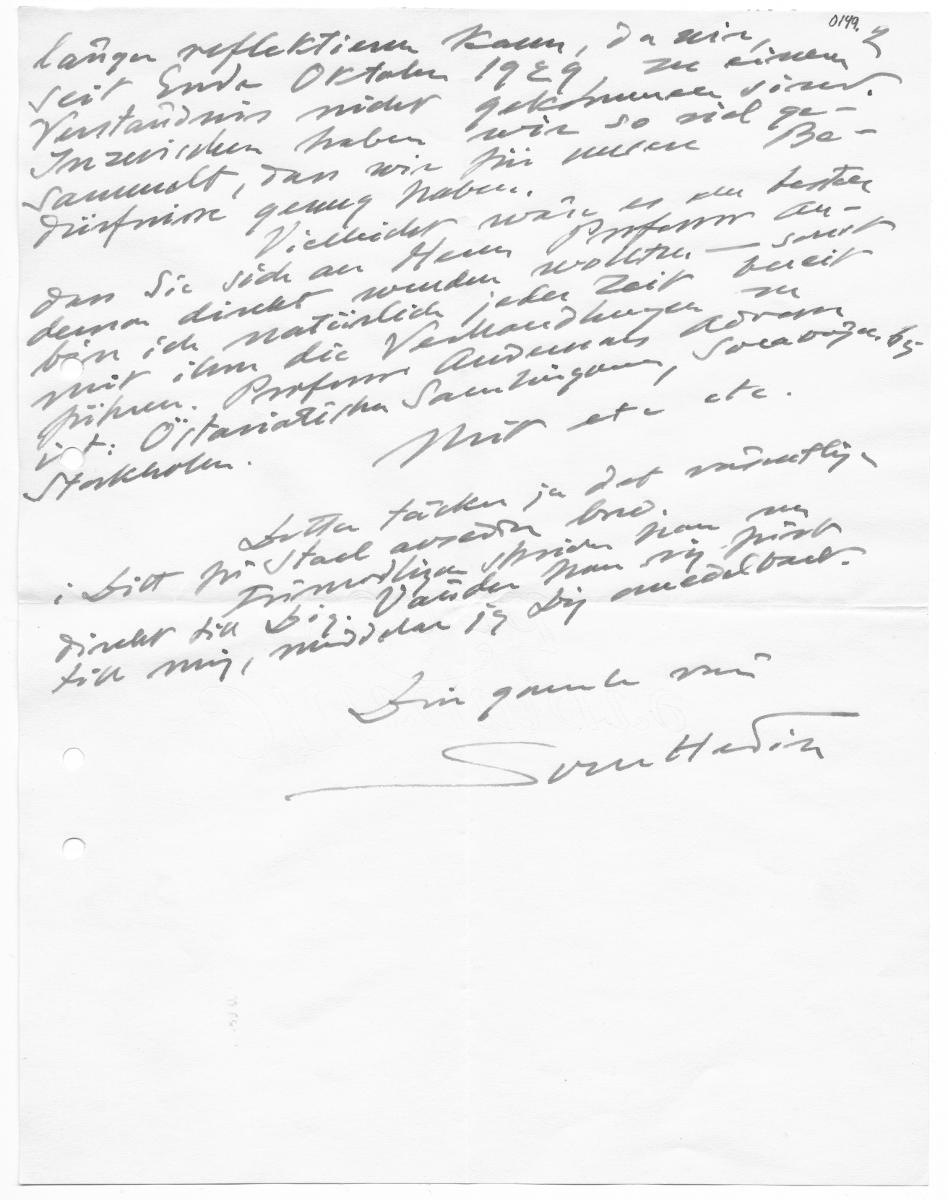 0149. 2
länger reflektieren kann, da wir,
seit Ende Oktober 1929, zu einem
Verständnis nicht gekommen sind.
Inzwischen haben wir so viel ge-
sammelt, dass wir für unsere Be-
dürfnisse genug haben.
Vielleicht wäre es am besten
dass Sie sich an Herrn Professor An-
derson direkt wenden wollten — sonst
bin ich natürlich jeder Zeit bereit
mit ihm die Verhandlungen zu
führen. Professor Andersons Adresse
ist: Östasiatiska Samlingarna,
Stockholm.
Mit etc etc.
Detta täcker ju det väsentliga
i Ditt på Stael avsedda brev.
Förmodligen skriver han nu
direkt till Dig. Vänder han sig först
till mig, meddelar jag Dig omedelbart.
Din gamle vän
Sven Hedin